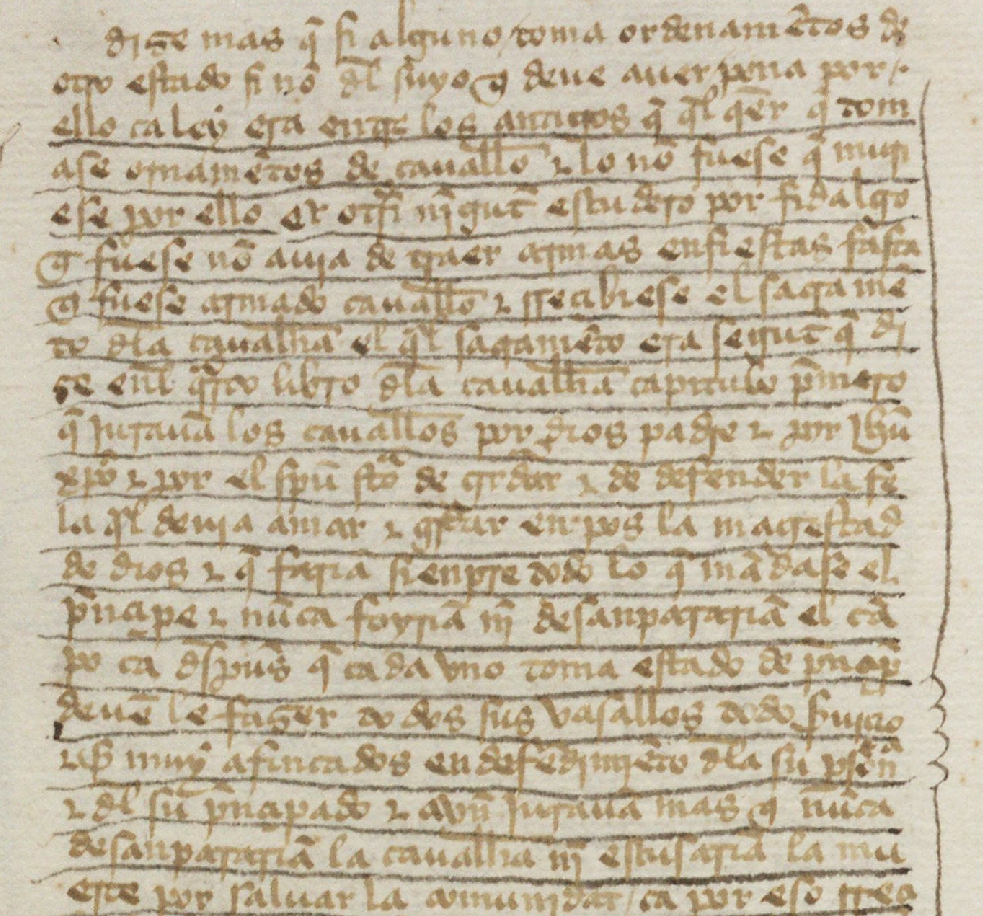 dize mas q̃ si alguno toma ordenamẽtos de
otro estado si nõ dl̃ suyo q̃ deue auer pena por
ello ca ley era entre los antigos q̃ ql̃ qer q̃ tom
ase ornamẽtos de cauallo ⁊ lo nõ fuese q̃ muri
ese por ello et otrsi nĩgut escudero por fidalgo
q̃ fuese nõ auja de traer armas enfiestas fasta
q̃ fuese armado cauallo ⁊ rreçibiese el saqramẽ
to dla caualłia el ql̃ sagramẽto era segut q̃ di
ze enl qrto libro dla caualłia capitulo pmero
q̃ jurauã los caualłos por dios padre ⁊ por jhũ
xpõ ⁊ por el spũ stõ de grdar ⁊ de defender la fe
la ql̃ deuia amar ⁊ grdar en pos la magestad
de dios ⁊ q̃ fariã sienpre todo lo q̃ mãdase el
pñcipe ⁊ nũca foyriã nĩ desanpararariã el cã
po ca dspũs q̃ cada vno toma estado de pñcip̃
deuẽ le fazer todos sus vasallos todo sᷣuiçio
⁊ s̃ muy afincados en defedimjẽto dla su psona
⁊ dl̃ su pñçipado ⁊ avñ jurauã mas q̃ nũca
desanparariã la caualłia nĩ escusariã la mu
erte por saluar la comunidat ca por eso rreç